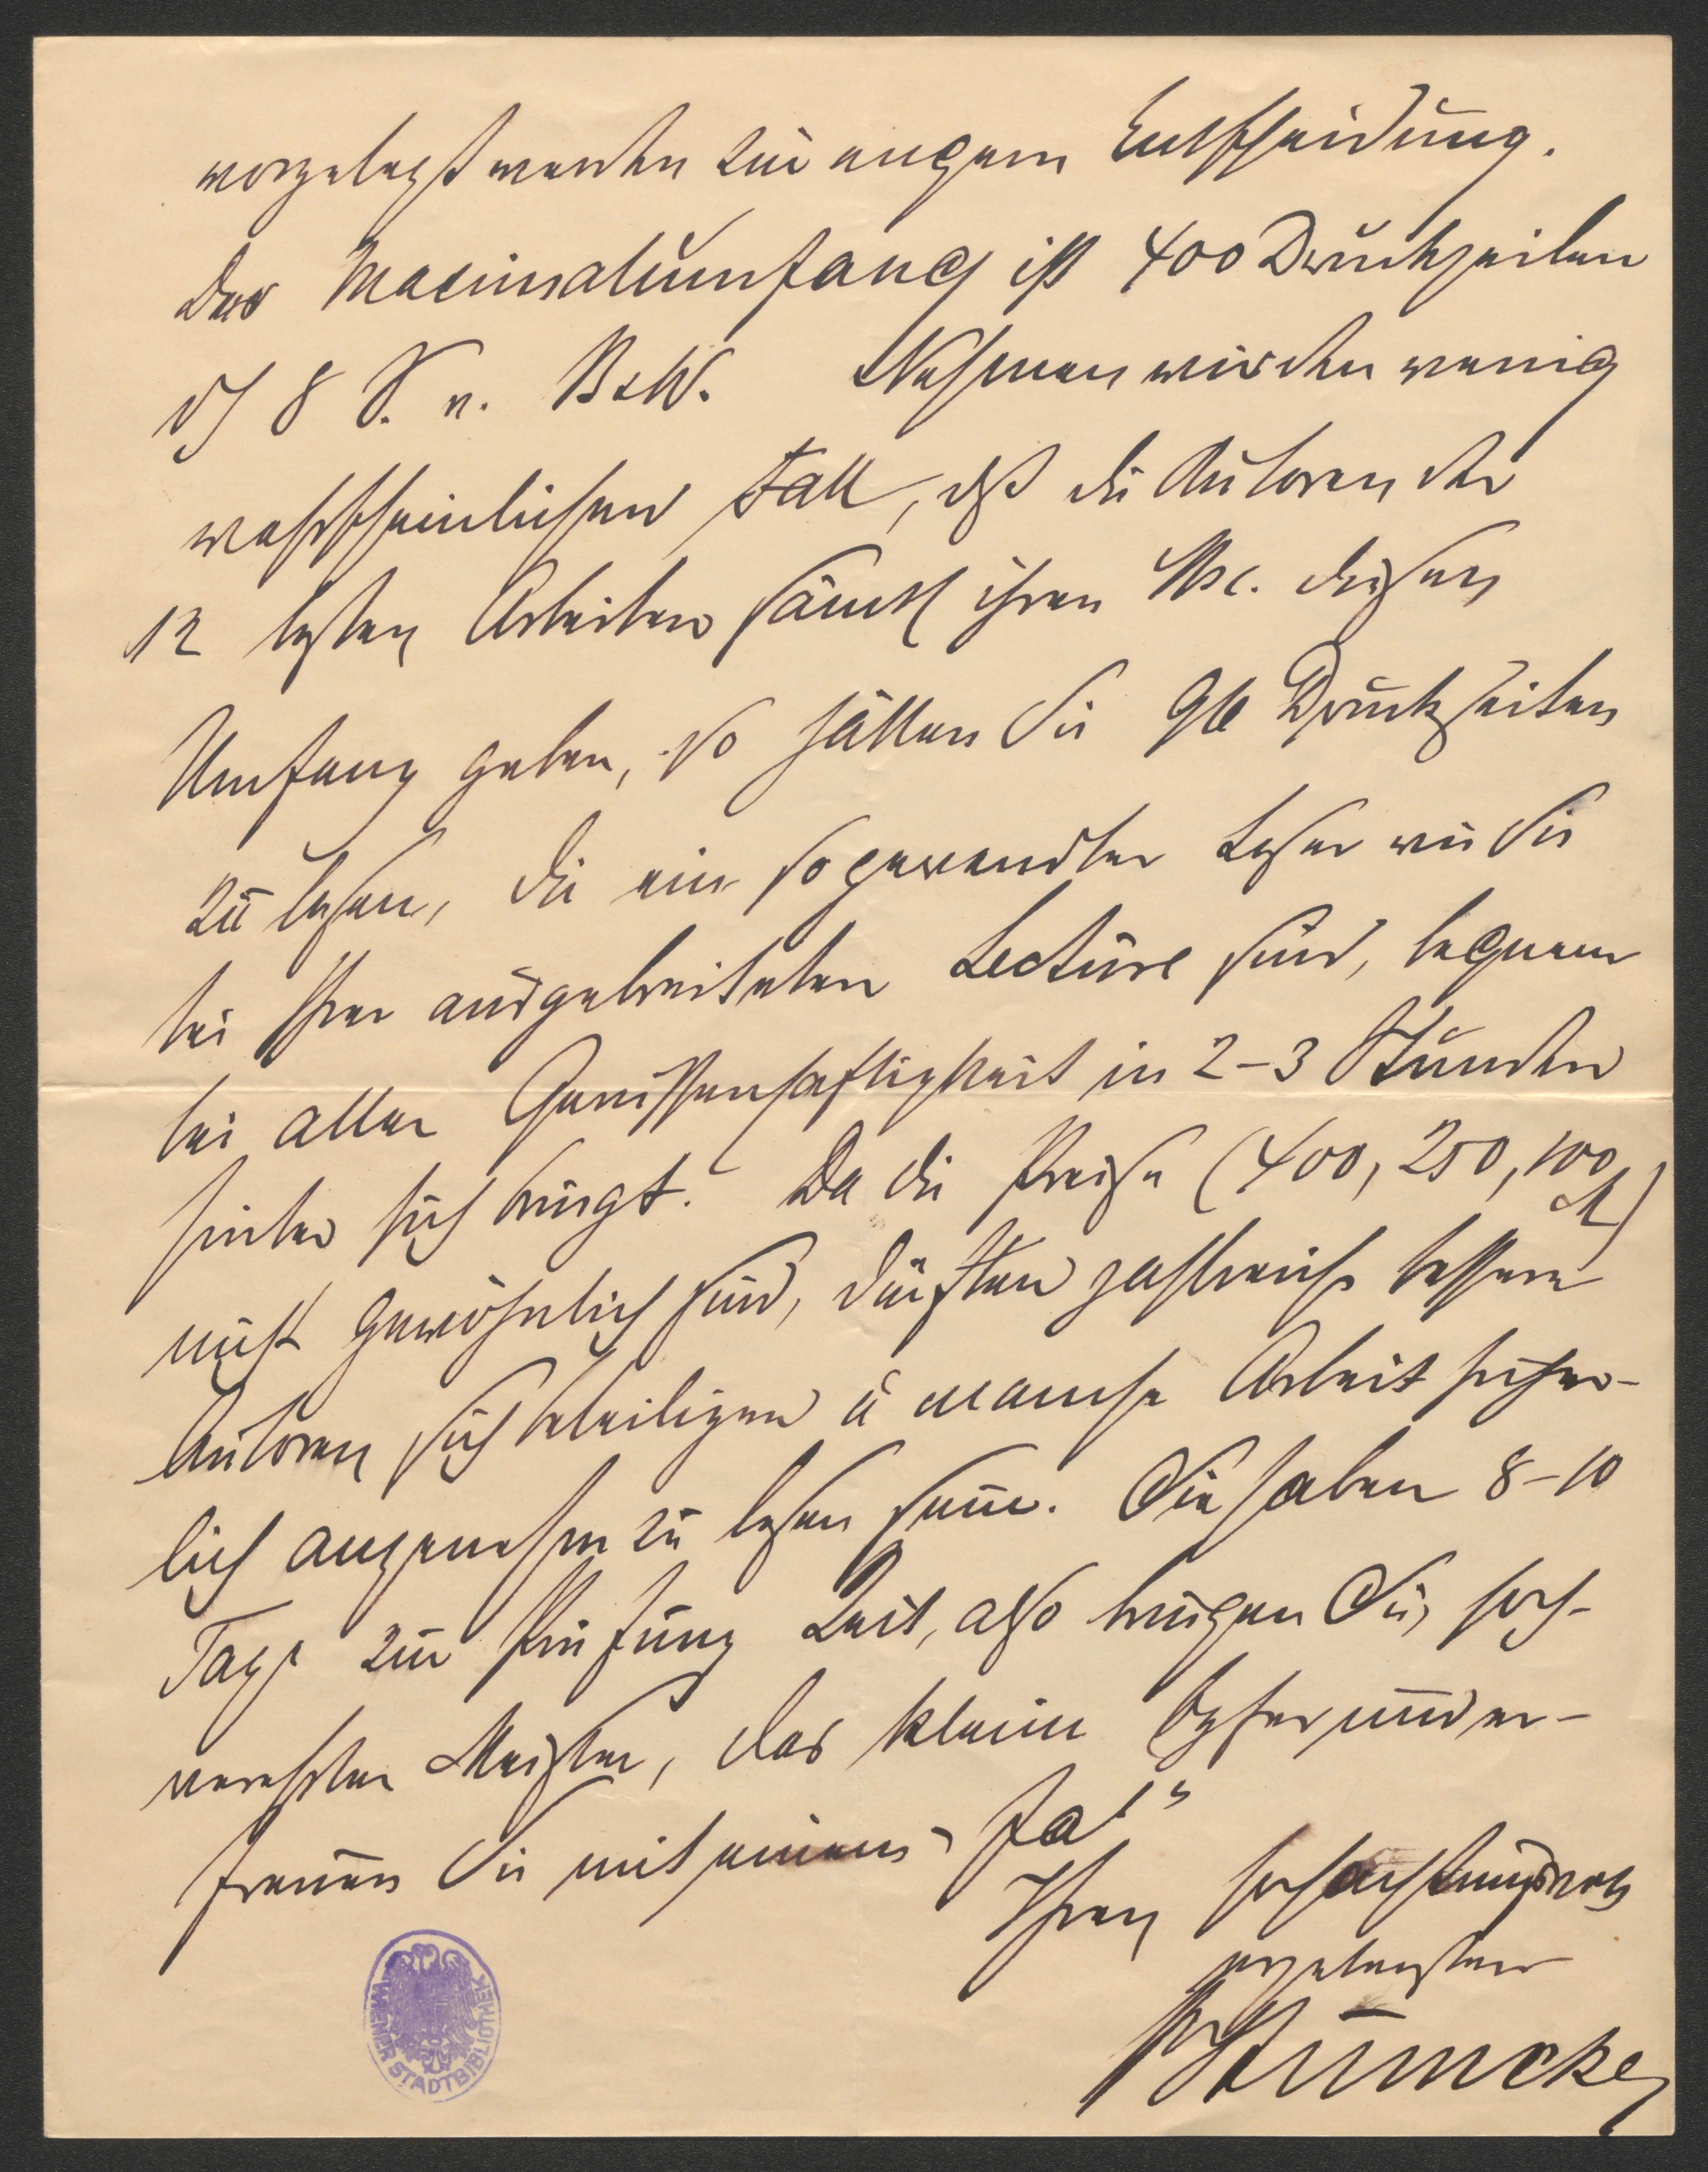 vorgelegt werden zur engern Entscheidung.
Der Maximalumfang ist 400 Druckzeilen
d/ 8 S. v. B&W. Nehmen wir den wenig
wahrscheinlichen Fall, dß die Autoren der
12 letzten Arbeiten sämtl ihren Msc. diesen
Umfang geben, so hätten Sie 96 Druckseiten
zu lesen, die ein so gewandter Leser wie Sie
bei Ihrer ausgebreiteten Lectüre sind, bequem
bei aller Gewissenhaftigkeit in 2–3 Stunden
hinter sich bringt. Da die Preise (400, 250, 100
M)
nicht gewöhnlich sind, dürften zahlreiche bessere
Autoren sich beteiligen u manche Arbeit sicher-
lich angenehm zu lesen sein. Sie haben 8–10
Tage zur Prüfung Zeit, also bringen Sie, hoch-
verehrter Meister, das kleine Opfer und er-
freuen Sie mit einem „Ja!“
Ihren hochachtungsvoll
ergebensten
Stümcke
WIENER STADTBIBLIOTHEK